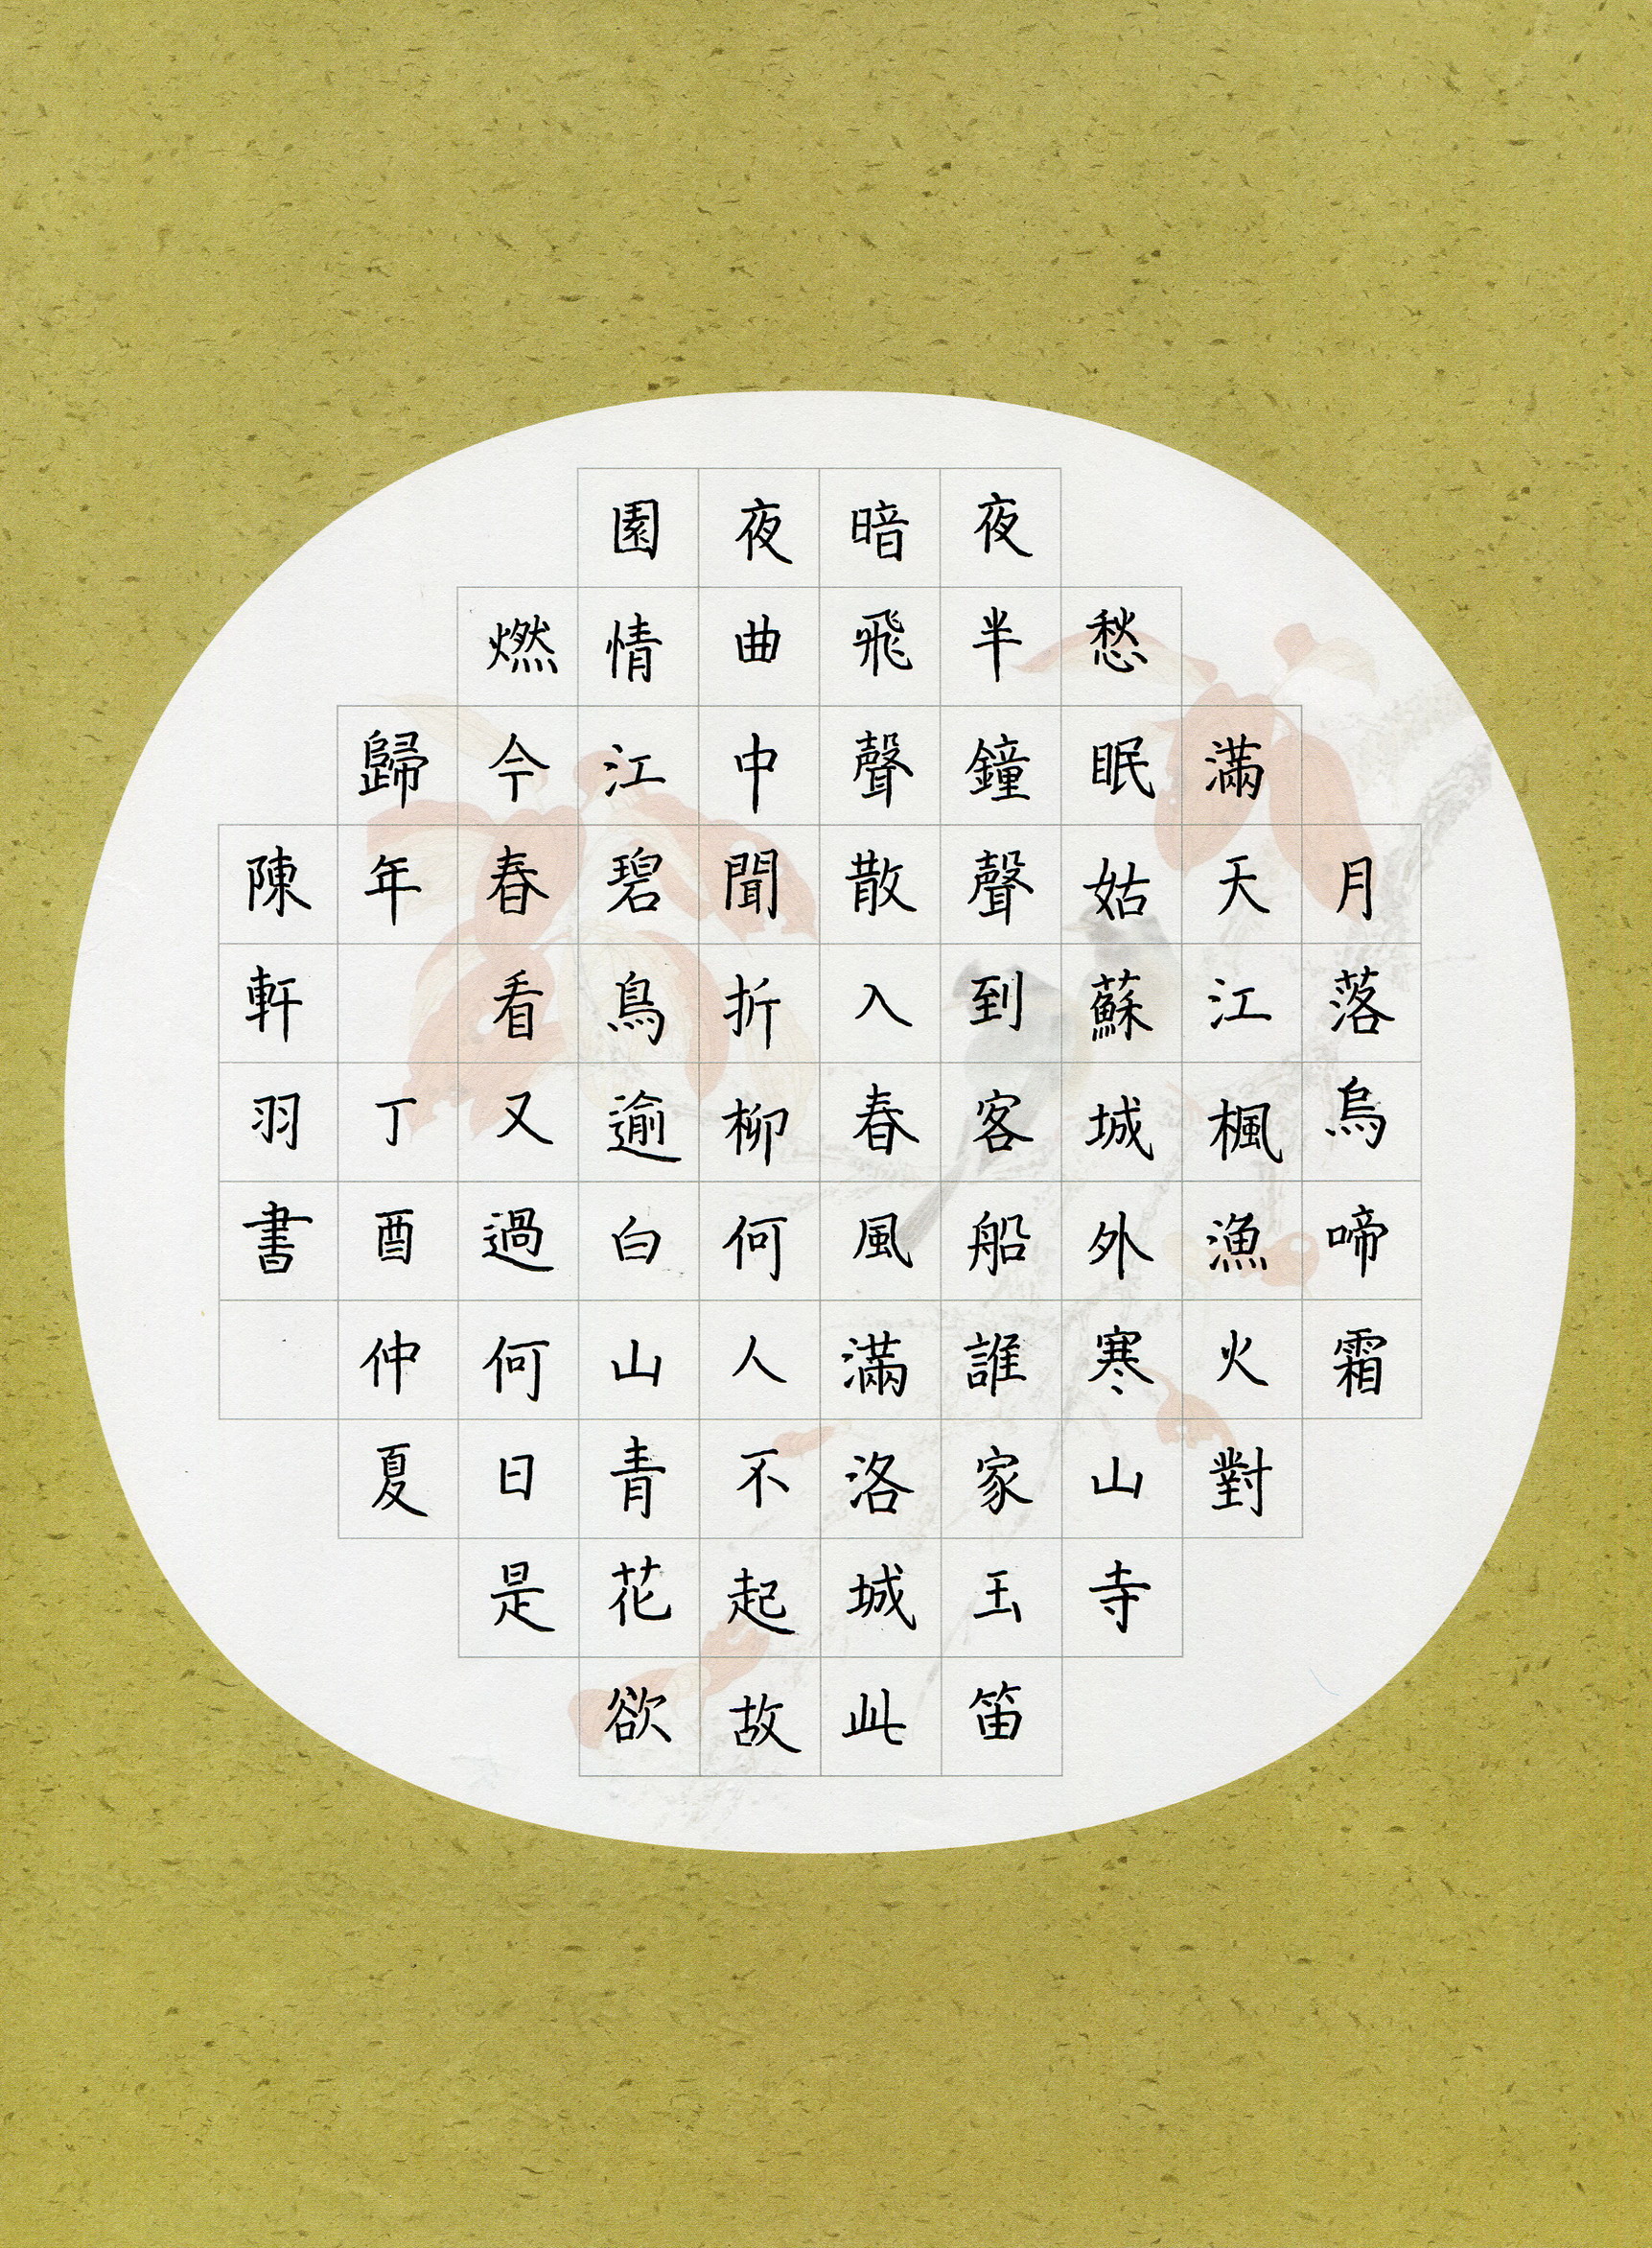 月落烏啼霜
滿天江楓漁火對
愁眠姑蘇城外寒山寺
夜半鐘聲到客船誰家玉笛
暗飛聲散入春風滿洛城此
夜曲中聞折柳何人不起故
園情江碧鳥逾白山青花欲
燃今春看又過何日是
歸年 丁酉仲夏
陳軒羽書